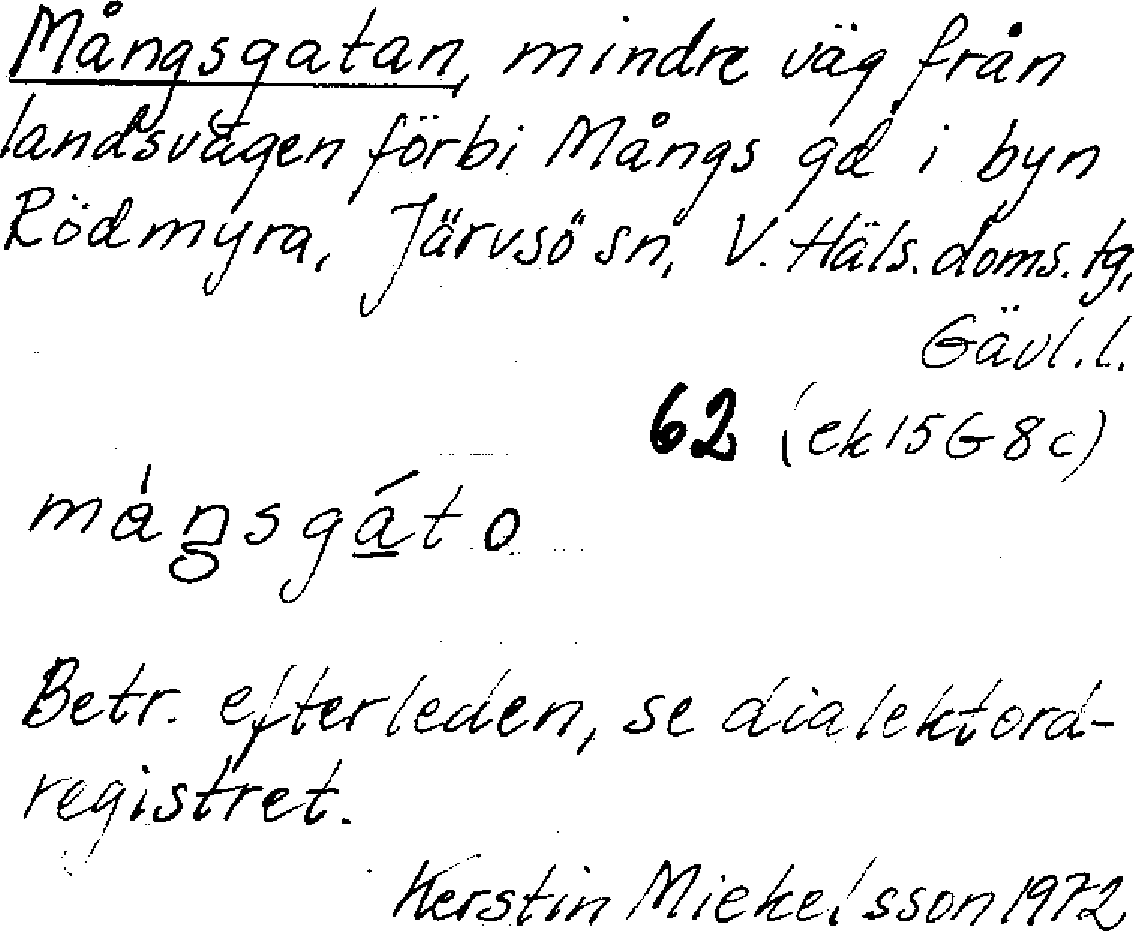 Mångsgatan, mindre väg från
landsvägen förbi Mångs gd i byn
Rödmyra, Järvsö sn, V. Häls. doms. tg,
Gävl. l.
62 (ek 15G 8c)
måŋsgáto
Betr. efterleden, se dialektord-
registret.
Kerstin Mickelsson 1972